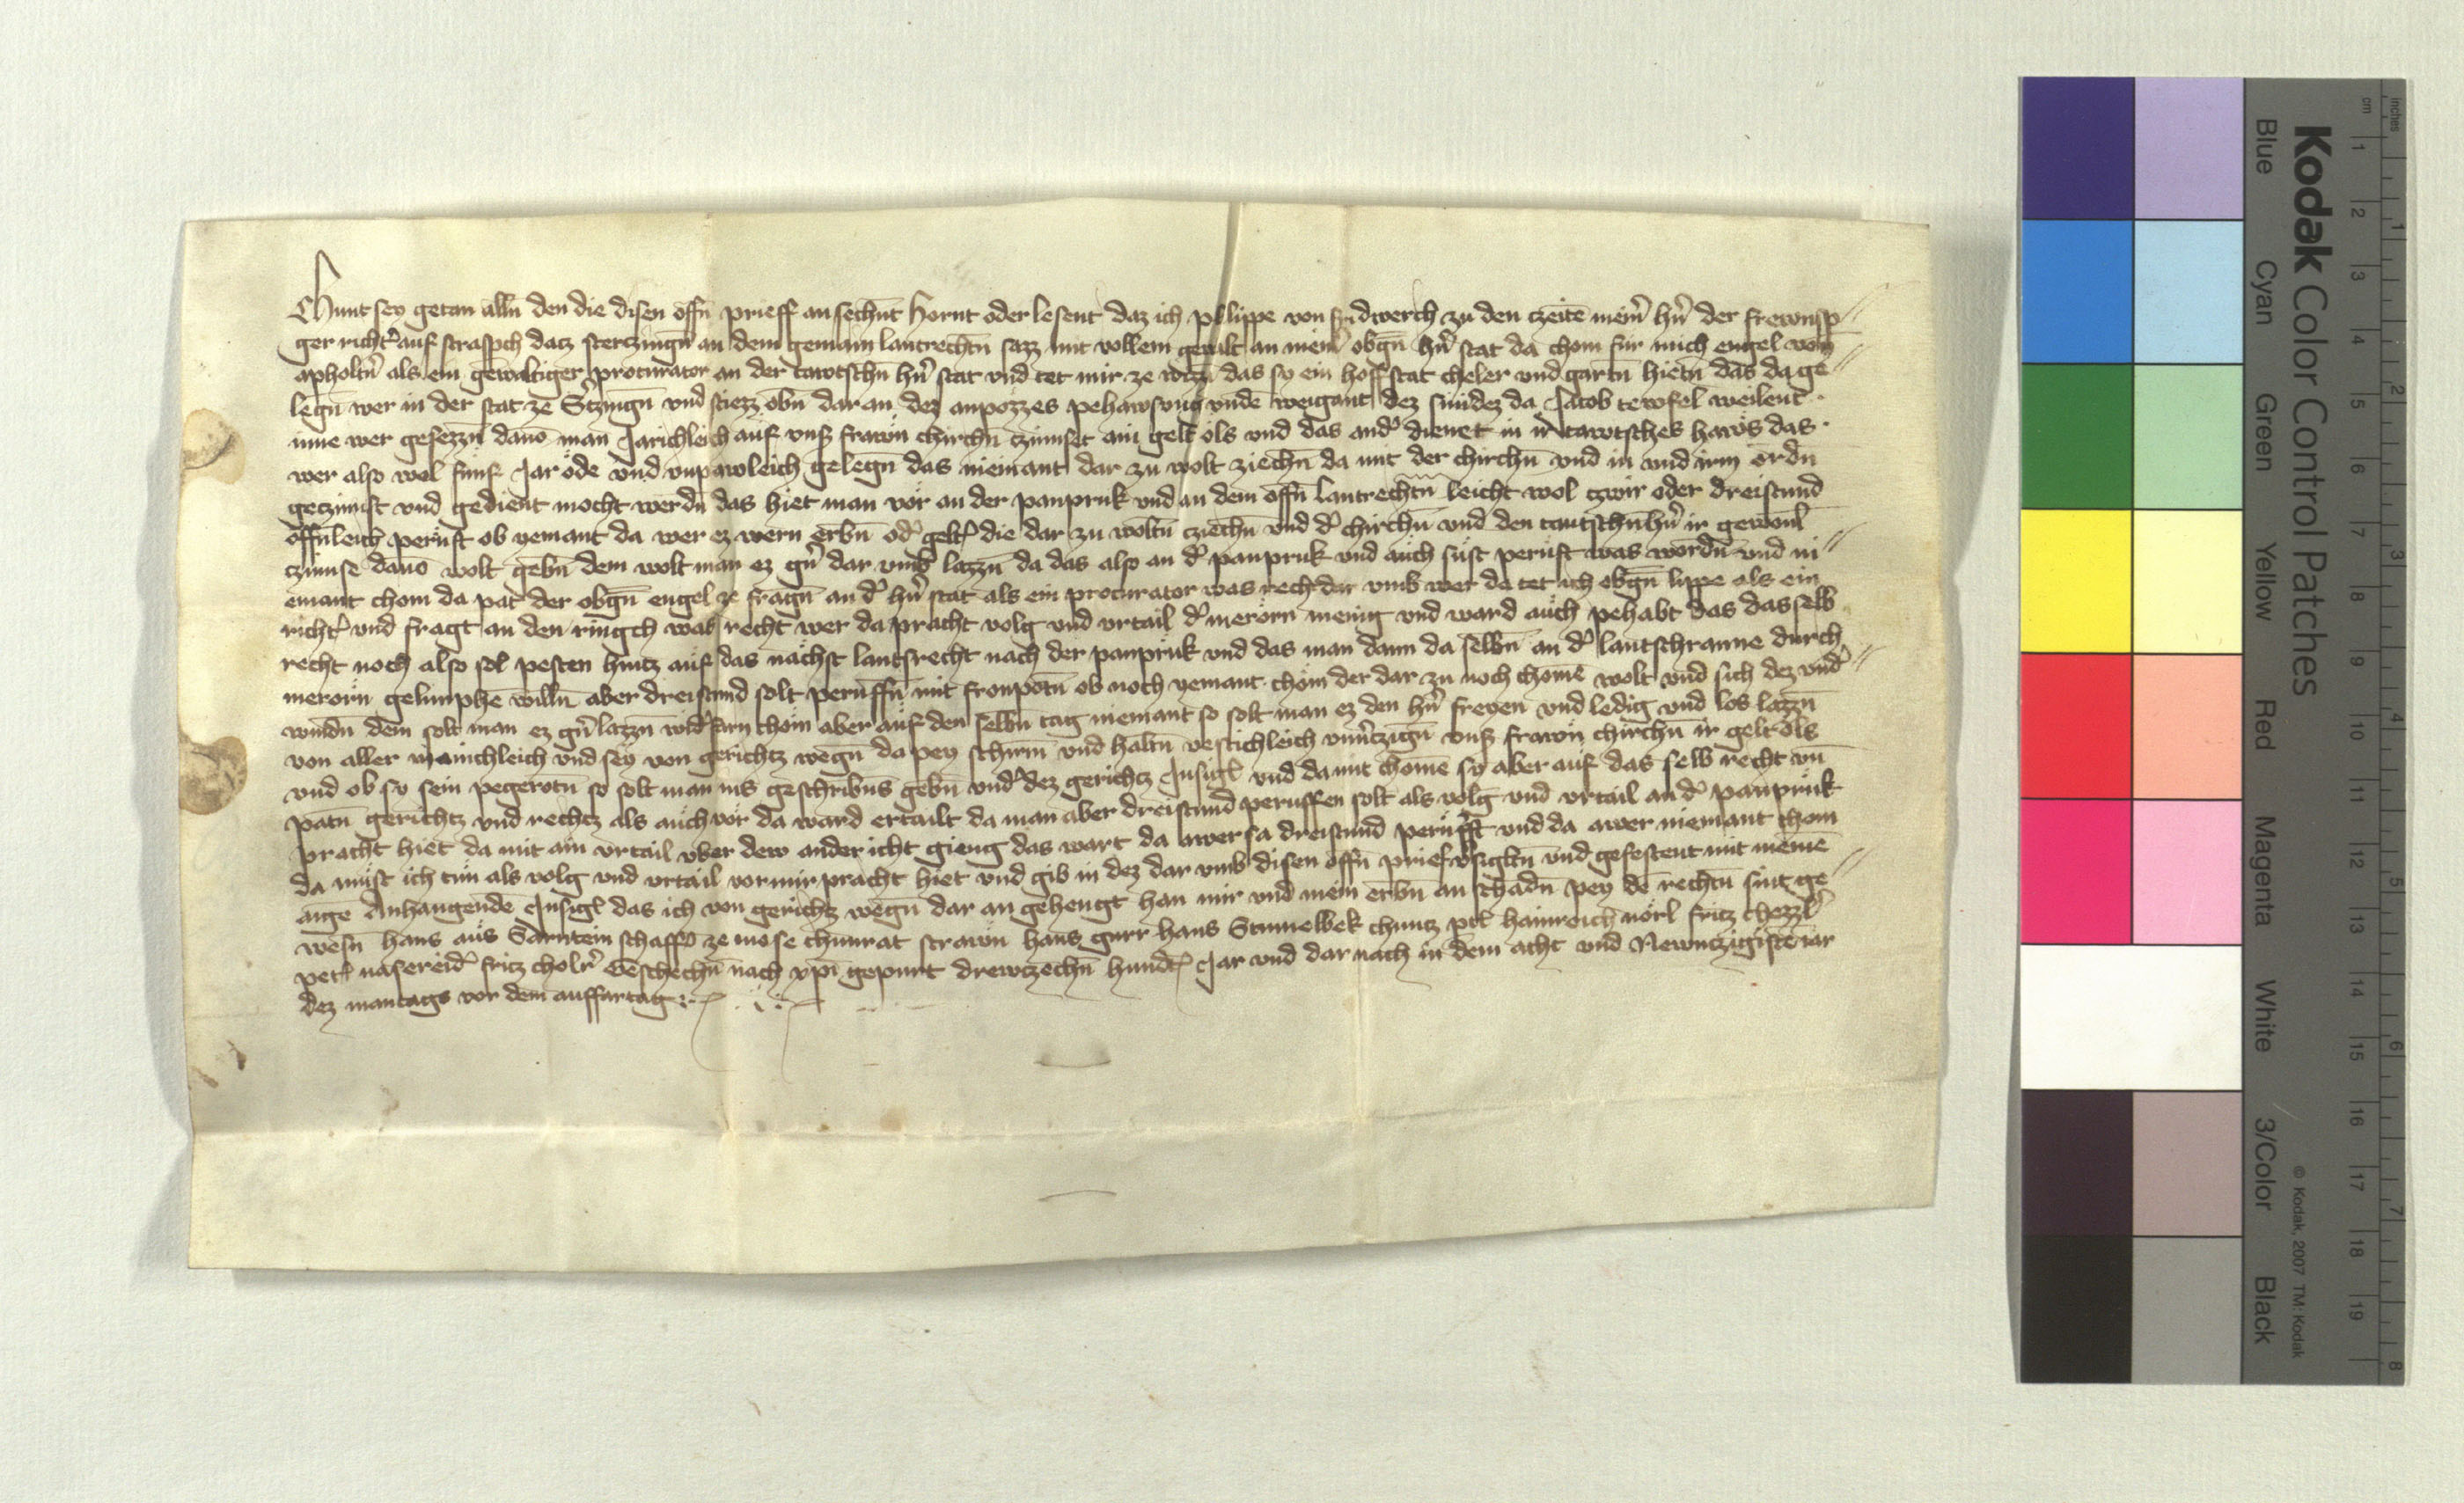 Chunt sey getan alln̄ den die disen offn̄ prieff an sechn̄t hornt oder lesent daz ich phlippe von zu den czeitē mein̄ hn̄ der frewnsp
ger richt' auf straspch dacz stertzingn̄ an dem gemain lantrechtn̄ sazz mit vollem gewalt an mein̄ obgn̄ hn̄ stat da chom für mich engel von
apholtn̄ als ein gewaltiger procurator an der tawtschn̄ hn̄ stat vnd tet mir ze wizzn̄ das sy ein hoff stat cheler vnd gartn̄ hietn̄ das da ge
legn̄ wer in der stat ze Stzingn̄ vnd stiezz obn̄ dar an dez anpozzes pehawsung vnde weigant dez smidez da Jacob tewfel weilent
inne wer gesezzn̄ dauō man Jarichleich auf vnß frawn̄ chirchn̄ czinnset ain gelt öls vnd das and' dienet in ir tawtsches haws das
wer also wol fünf Jar öde vnd vnpawleich gelegn̄ das niemant dar zu wolt ziechn̄ da mit der chirchn̄ vnd in vnd irm ordn̄
geczinnst vnd gedient mocht werdn̄ das hiet man vor an der panpruk vnd an dem offn̄ lantrechtn̄ leicht wol czwir oder dreistund
offn̄leich perüft ob yemant da wer ez wern erbn̄ od' gelt' die dar zu woltn̄ cziechn̄ vnd d' chirchn̄ vnd den tautschn̄ hn̄ ir gewonl
czinnse dauō wolt gebn̄ dem wolt man ez gn̄ dar vmb lazzn̄ da das also an d' panpruk vnd auch süst perüft was wordn̄ vnd ni
emant chom da pat der obgn̄ engel ze fragn̄ an d' hn̄ stat als ein procurator was recht dar vmb wer da tet ich obgn̄ lippe als ein
richt' vnd fragt an den ringch was recht wer da pracht volg vnd vrtail d' merorn menig vnd ward auch pehabt das das selb
recht noch also sol pesten hintz auf das nächst lantsrecht nach der panpruk vnd das man dann da selbn̄ an d' lantschranne durch
merorn gelimphe willn̄ aber dreistund solt perüffn̄ mit fronpotn̄ ob noch yemant chöm der dar zu noch chomē wolt vnd sich dez vnd'
wundn̄ dem solt man ez gn̄ lazzn wid'farn chöm aber auf den selbn̄ tag niemant so solt man ez den hn̄ freyen vnd ledig vnd los lazzn̄
von aller mainchleich vnd sey von gerichtz wegn̄ da pey schirm vnd haltn̄ vestichleich vnuͬczign̄ vnß frawn̄ chirchn̄ ir gelt öls
vnd ob sy sein pegerotn̄ so solt man ins geschribns gebn̄ vnd' dez gerichtz Jnsigl vnd da mit chomē sy aber auf das selb recht vn̄
patn̄ gerichtz vnd rechtz als auch vor da ward ertailt da man aber dreistund peruffen solt als volg vnd vrtail an d' panpruk
pracht hiet da mit ain vrtail vber dew ander icht gieng das wart da awer sa dreistund perüfft vnd da awer niemant chom
da müst ich tün als volg vnd vrtail vor mir pracht hiet vnd gib in dez dar vmb disen offn̄ prief v'sigltn̄ vnd gefestent mit meinē
aigē Anhangendē Jnsigl das ich von gerichtz wegn̄ dar an gehengt han mir vnd mein erbn̄ an schadn̄ pey dē rechtn̄ sint ge
wesn̄ hans aus Sarntein schaff' ze mose chunrat strawn̄ hans gurr hans Stunelbek chuntz hainreich nörl fritz chezzl'
pet' nasereid' fritz cholr' Geschechn̄ nach xp̄i gepurt drewczechn̄ hund't Jar vnd dar nach in dem acht vnd Newnczigistē iar
dez mantags vor dem auffartag
Kodak Color Control Patches
Blue Cyan Green Yellow Red Magenta White 3/Color Black
© Kodak, 2007 TM: Kodak
inches 1 2 3 4 5 6 7 8
cm 1 2 3 4 5 6 7 8 9 10 11 12 13 14 15 16 17 18 19